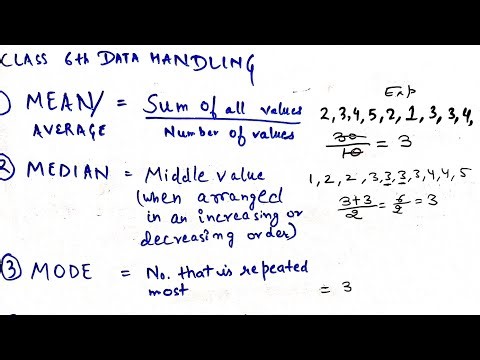 CLASS 6th DATA HANDLING
1) MEAN/ AVERAGE = Sum of all values / Number of values
Exp
2,3,4,5,2,1,3,3,4,
30/10 = 3
2 MEDIAN = Middle value
(when arranged
in an increasing or
decreasing order)
1,2,2,3,3,3,3,4,4,5
3+3/2 = 6/2 = 3
3 MODE = No. that is repeated
most
= 3